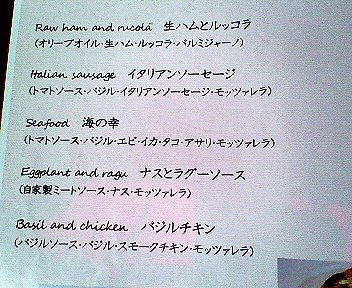 Raw ham and rucola 生ハムとルッコラ
(オリーブオイル・生ハム・ルッコラ・パルミジャーノ)
Italian sausage イタリアンソーセージ
(トマトソース・バジル・イタリアンソーセージ・モッツァレラ)
Seafood 海の幸
(トマトソース・バジル・エビ・イカ・タコ・アサリ・モッツァレラ)
Eggplant and ragu ナスとラグーソース
(自家製ミートソース・ナス・モッツァレラ)
Basil and chicken バジルチキン
(バジルソース・バジル・スモークチキン・モッツァレラ)